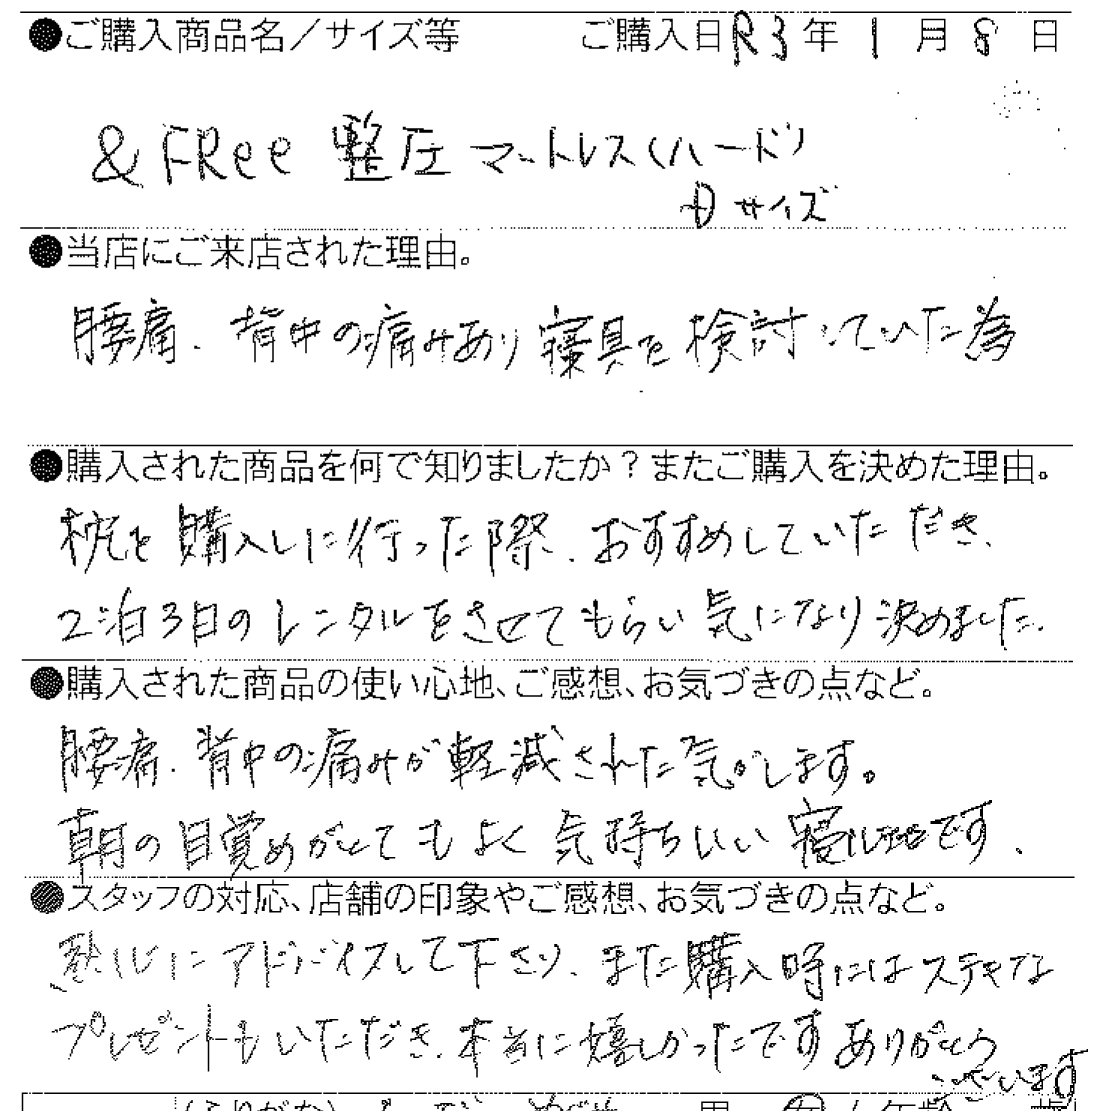 ●ご購入商品名／サイズ等　ご購入日R3年1月8日
&FRee 整圧マットレス(ハード)
Dサイズ
●当店にご来店された理由。
腰痛、背中の痛みあり寝具を検討していた為
●購入された商品を何で知りましたか？またご購入を決めた理由。
枕を購入しに行った際、おすすめしていただき、
2泊3日のレンタルをさせてもらい気になり決めました。
●購入された商品の使い心地、ご感想、お気づきの点など。
腰痛、背中の痛みが軽減された気がします。
朝の目覚めがとてもよく気持ちいい寝心地です。
●スタッフの対応、店舗の印象やご感想、お気づきの点など。
親身にアドバイスして下さり、また購入時にはステキな
プレゼントもいただき、本当に嬉しかったですありがとう
ございます
(ふりがな)
男　女／年齢　歳